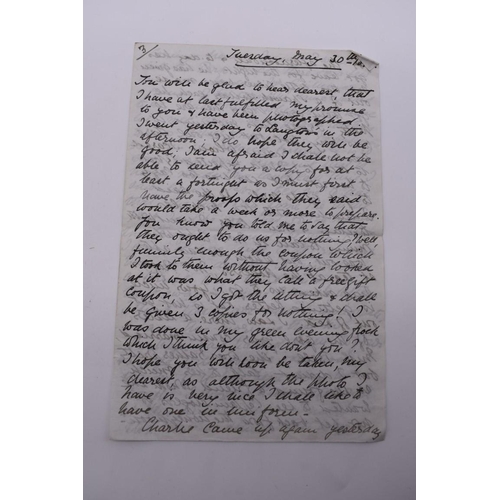 3/
Tuesday, May 30th
You will be glad to hear dearest that
I have at last fulfilled my promise
to you & have been photographed.
I went yesterday to Langtons in the
afternoon I do hope they will be
good; I am afraid I shall not be
able to send you a copy for at
least a fortnight as I must first
have the proofs which they said
would take a week or more to prepare.
You know you told me to say that
they ought to do us for nothing! Well
funnily enough the coupon which
I took to them without having looked
at it was what they call a free gift
coupon, so I got the sitting & shall
be given 3 copies for nothing! I
was done in my green evening frock
which I think you like dont you?
I hope you will soon be taken, my
dearest, as although the photo I
have is very nice I shall like to
have one in uniform -
Charlie came up again yesterday